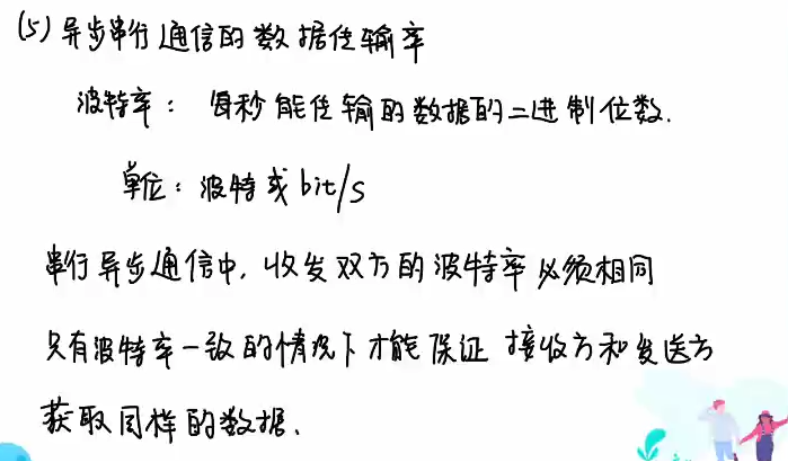 (5) 异步串行通信的数据传输率
波特率：每秒能传输的数据的二进制位数.
单位：波特或bit/s
串行异步通信中, 收发双方的波特率必须相同
只有波特率一致的情况下才能保证 接收方和发送方
获取同样的数据.